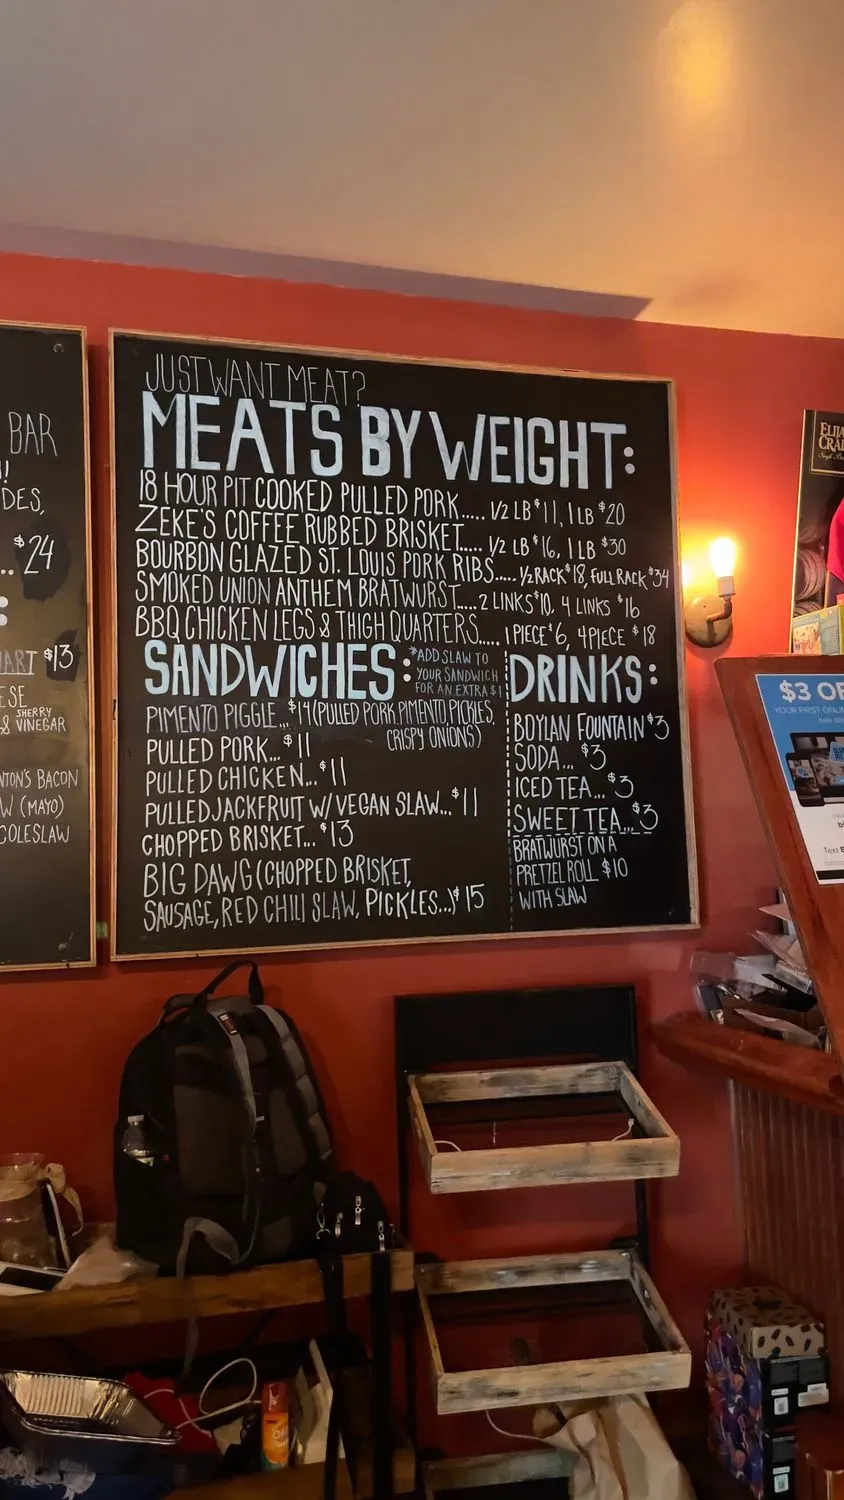 BAR
DES,
$24
$13
ESE
& SHERRY VINEGAR
BACON
(MAYO)
COLESLAW
JUST WANT MEAT?
MEATS BY WEIGHT:
18 HOUR PIT COOKED PULLED PORK..... 1/2 LB $11, 1 LB $20
ZEKE'S COFFEE RUBBED BRISKET..... 1/2 LB $16, 1 LB $30
BOURBON GLAZED ST. LOUIS PORK RIBS..... 1/2 RACK $18, FULL RACK $34
SMOKED UNION ANTHEM BRATWURST..... 2 LINKS $10, 4 LINKS $16
BBQ CHICKEN LEGS & THIGH QUARTERS..... 1 PIECE $6, 4 PIECE $18
SANDWICHES:
*ADD SLAW TO
YOUR SANDWICH
FOR AN EXTRA $1
PIMENTO PIGGLE...$14 (PULLED PORK, PIMENTO, PICKLES,
CRISPY ONIONS)
PULLED PORK...$11
PULLED CHICKEN...$11
PULLED JACKFRUIT W/ VEGAN SLAW...$11
CHOPPED BRISKET...$13
BIG DAWG (CHOPPED BRISKET,
SAUSAGE, RED CHILI SLAW, PICKLES...) $15
DRINKS:
BOYLAN FOUNTAIN $3
SODA... $3
ICED TEA... $3
SWEET TEA... $3
BRATWURST ON A
PRETZEL ROLL $10
WITH SLAW
$3 OF
YOUR FIRST ONLIN
Text